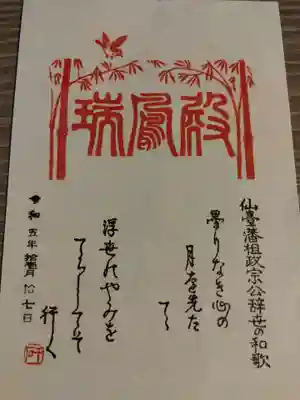 瑞鳳殿
仙臺藩祖政宗公辞世の和歌
曇りなき心の
月を先た
てゝ
浮世のやみを
てらしてそ
行く
令和五年拾壱月拾七日